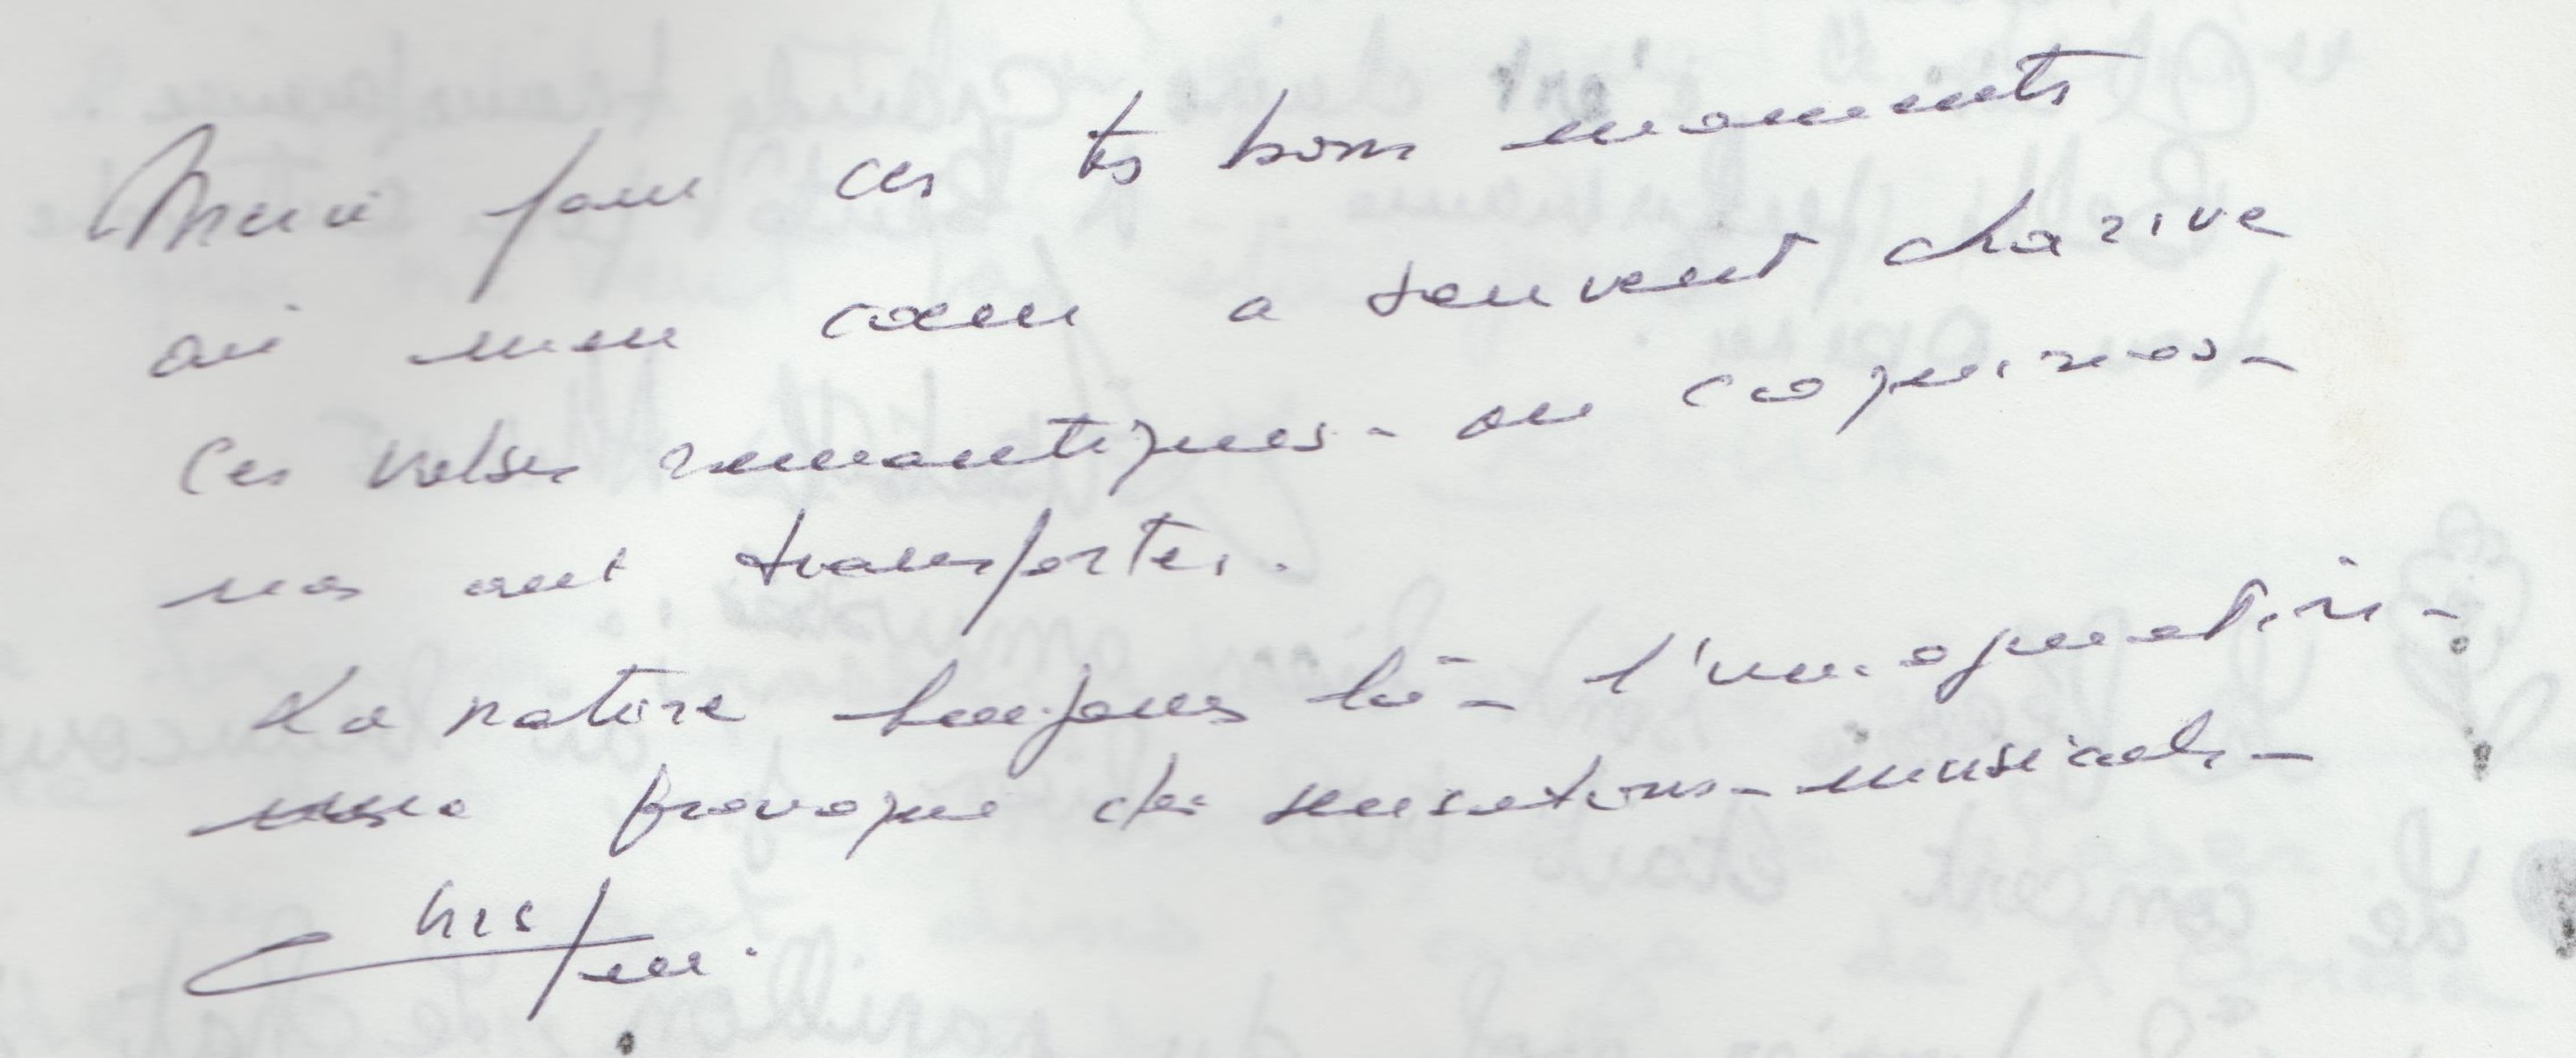 Merci pour ces ts bons moments
où mon coeur a souvent chaviré
Ces valses romantiques - ou coquines -
nos ont transportés.
La nature toujours là - l'imagination -
provoque des sensations - musicales -
Christine.